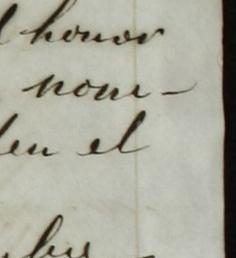 l honor
nom-
den el